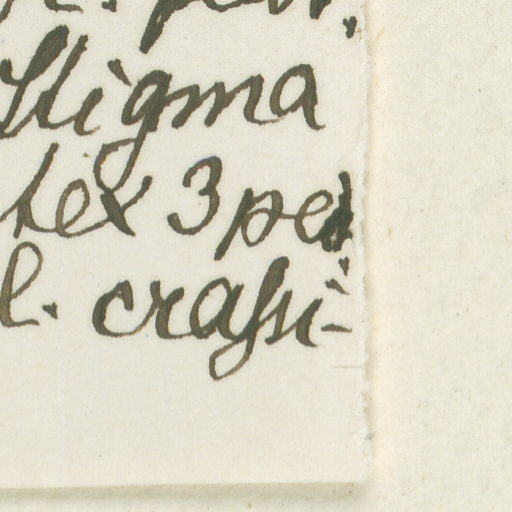 Stigma
tex 3 pe
l. crassi-